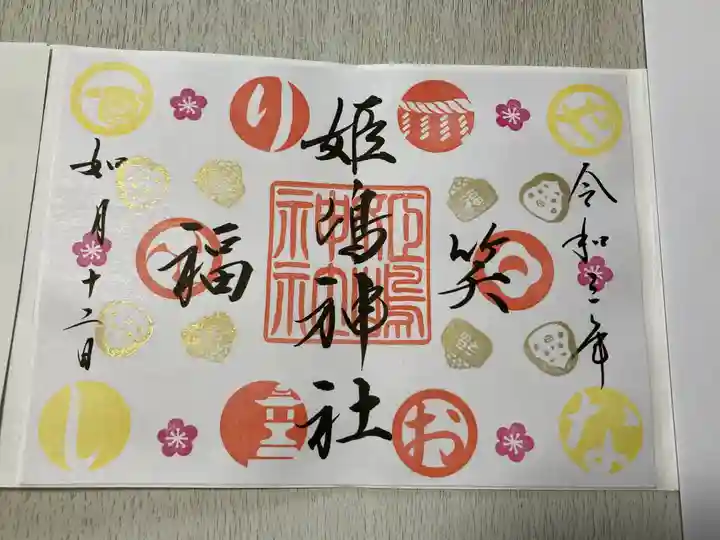 令和三年
笑
姫嶋神社
福
如月十二日
姫嶋神社
や
り
な
お
し